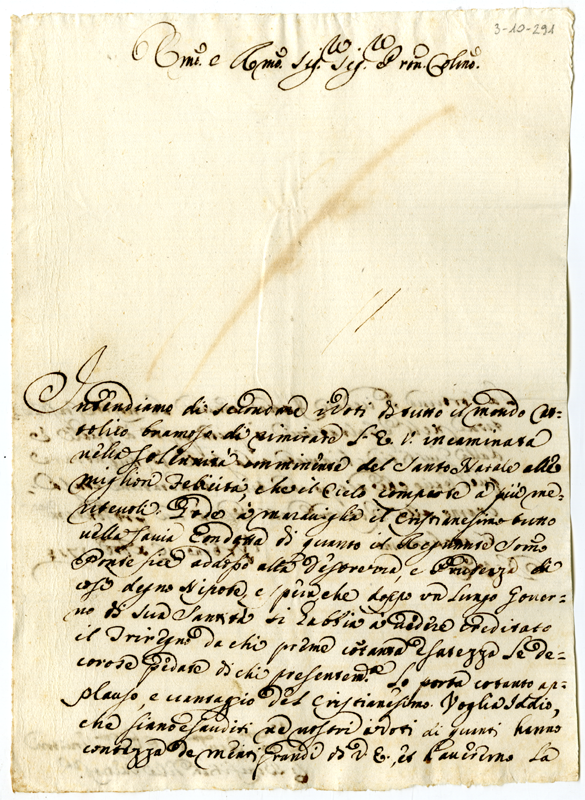 3-10-291
Emo. e Rmo. Sig. Sig. Pron. Colmo.
Intendiamo di secondare i Voti di tutto il mondo Ca-
tolico bramoso di rimirare S. E. V. incaminata
nella Solennità imminente del Santo Natale alle
migliori Felicità, che il Cielo comparte a' più me-
ritevoli. Gode a maraviglia il Cristianesimo tutto
nella savia Condotta di quanto il Regnante Somo
Ponte fice addossò alla Desterità, e Prudenza di
così degno Nipote, e più che doppo un lungo Gover-
no di Sua Santità si habbia a vedere ereditato
il Triregno da chi preme cotanta esatezza le de-
corose pedate di chi presentemte. Lo porta cotanto ap-
plauso, e vantagio del Cristianesimo. Voglia Iddio,
che siano esauditi ne nostri Voti di quanti hanno
contezza de meriti grandi di V. E., et haveremo la